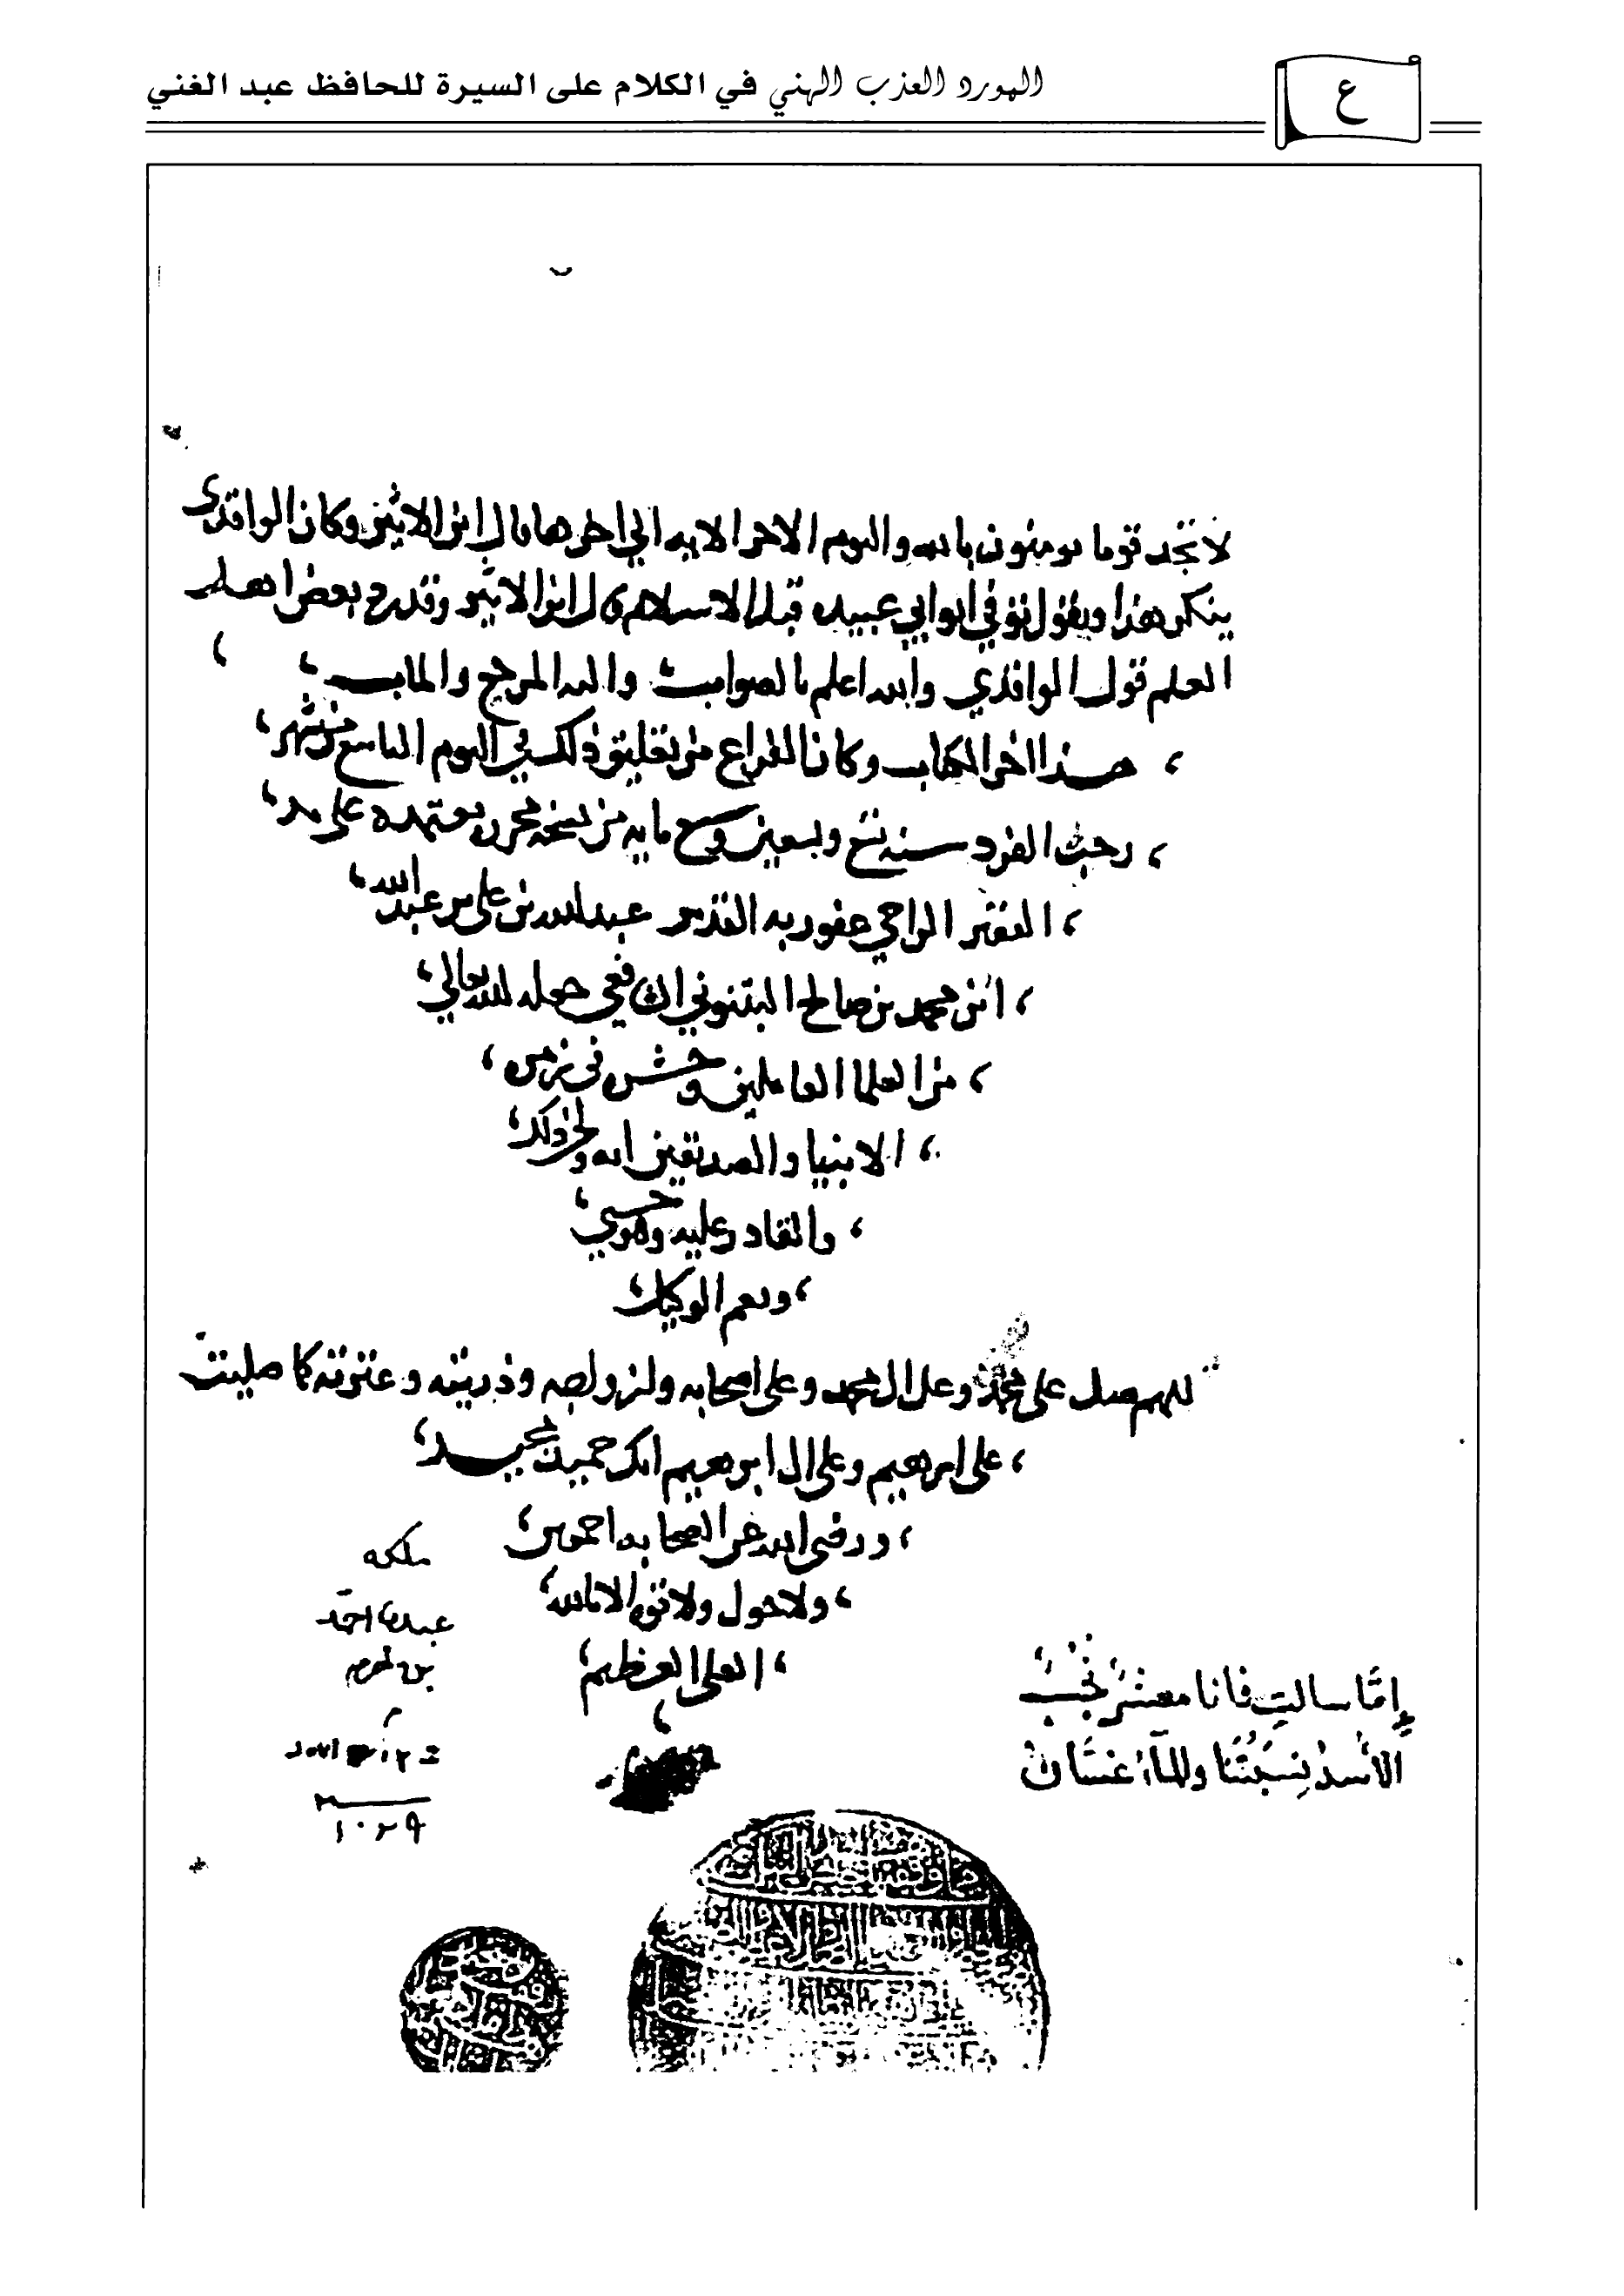 ع
المورد العذب الهني في الكلام على السيرة للحافظ عبد الغني
لا تجد قوما يومنون بالله واليوم الاخر الايه الي اخرها قال ابن الاثير وكان الواقدي
ينكر هذا ويقول توفي ابو ابي عبيده قبل الاسلام قال ابن الاثير وقد رد بعض اهل
العلم قول الواقدي والله اعلم بالصواب واليه المرجع والماب
هذا اخر الكتاب وكان الفراغ من تعليق ذلك في اليوم التاسع من شهر
رجب الفرد سنه تسع وتسعين وسبع مايه من نسخه محرره معتمده على يد
الفقير الراجي عفو ربه القدير عبد الله بن علي بن عبد الله
ابن محمد بن صالح البتنوني الشافعي جعله الله تعالي
من العلما العاملين وحشر في زمره
الانبيا والصديقين انه ولي ذلك
والقادر عليه وهو حسبي
ونعم الوكيل
اللهم صل على محمد وعلى ال محمد وعلى اصحابه وازواجه وذريته وعترته كما صليت
على ابرهيم وعلى ال ابرهيم انك حميد مجيد
ورضي الله عن الصحابه اجمعين
ولا حول ولا قوه الا بالله
العلي العظيم
ملكه
احمد
بن
١٠٢٩
إمّا سالتِ فانا معشرٌ نُجُبٌ
الأسدُ نِسبَتُنَا والمآءُ غسّانُ